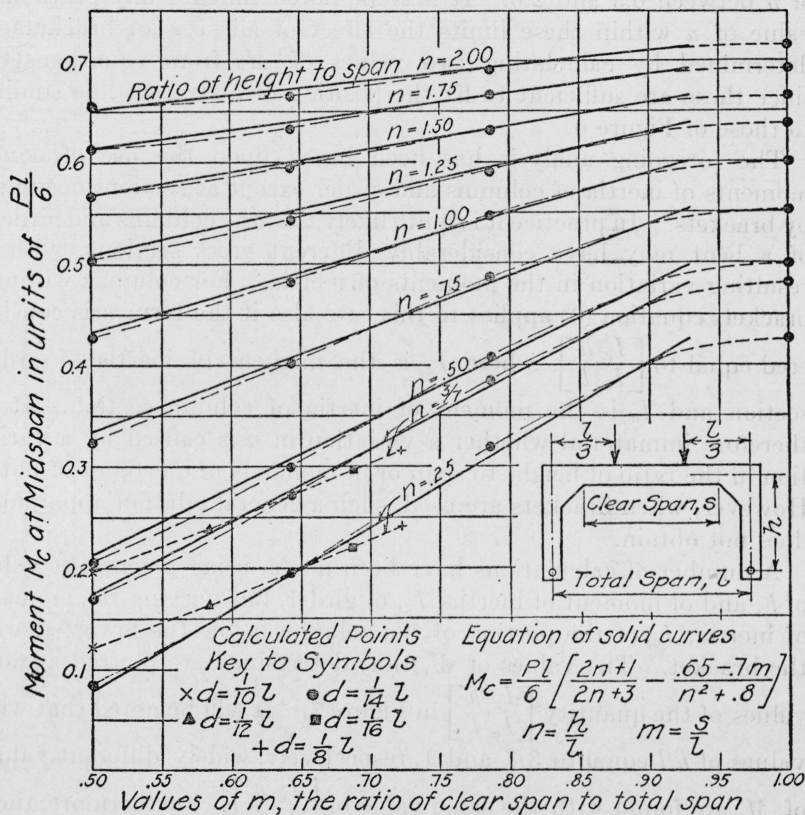 Moment Mc at Midspan in units of Pl/6
0.7
0.6
0.5
0.4
0.3
0.2
0.1
Ratio of height to span n=2.00
n=1.75
n=1.50
n=1.25
n=1.00
n=.75
n=.50
n=3/7
n=.25
l/3
l/3
Clear Span, s
h
Total Span, l
Calculated Points
Key to Symbols
× d=1/10 l
● d=1/14 l
▲ d=1/12 l
■ d=1/16 l
+ d=1/8 l
Equation of solid curves
Mc = Pl/6 [2n+1/2n+3 - .65-.7m/n²+.8]
n=h/l m=s/l
.50 .55 .60 .65 .70 .75 .80 .85 .90 .95 1.00
Values of m, the ratio of clear span to total span